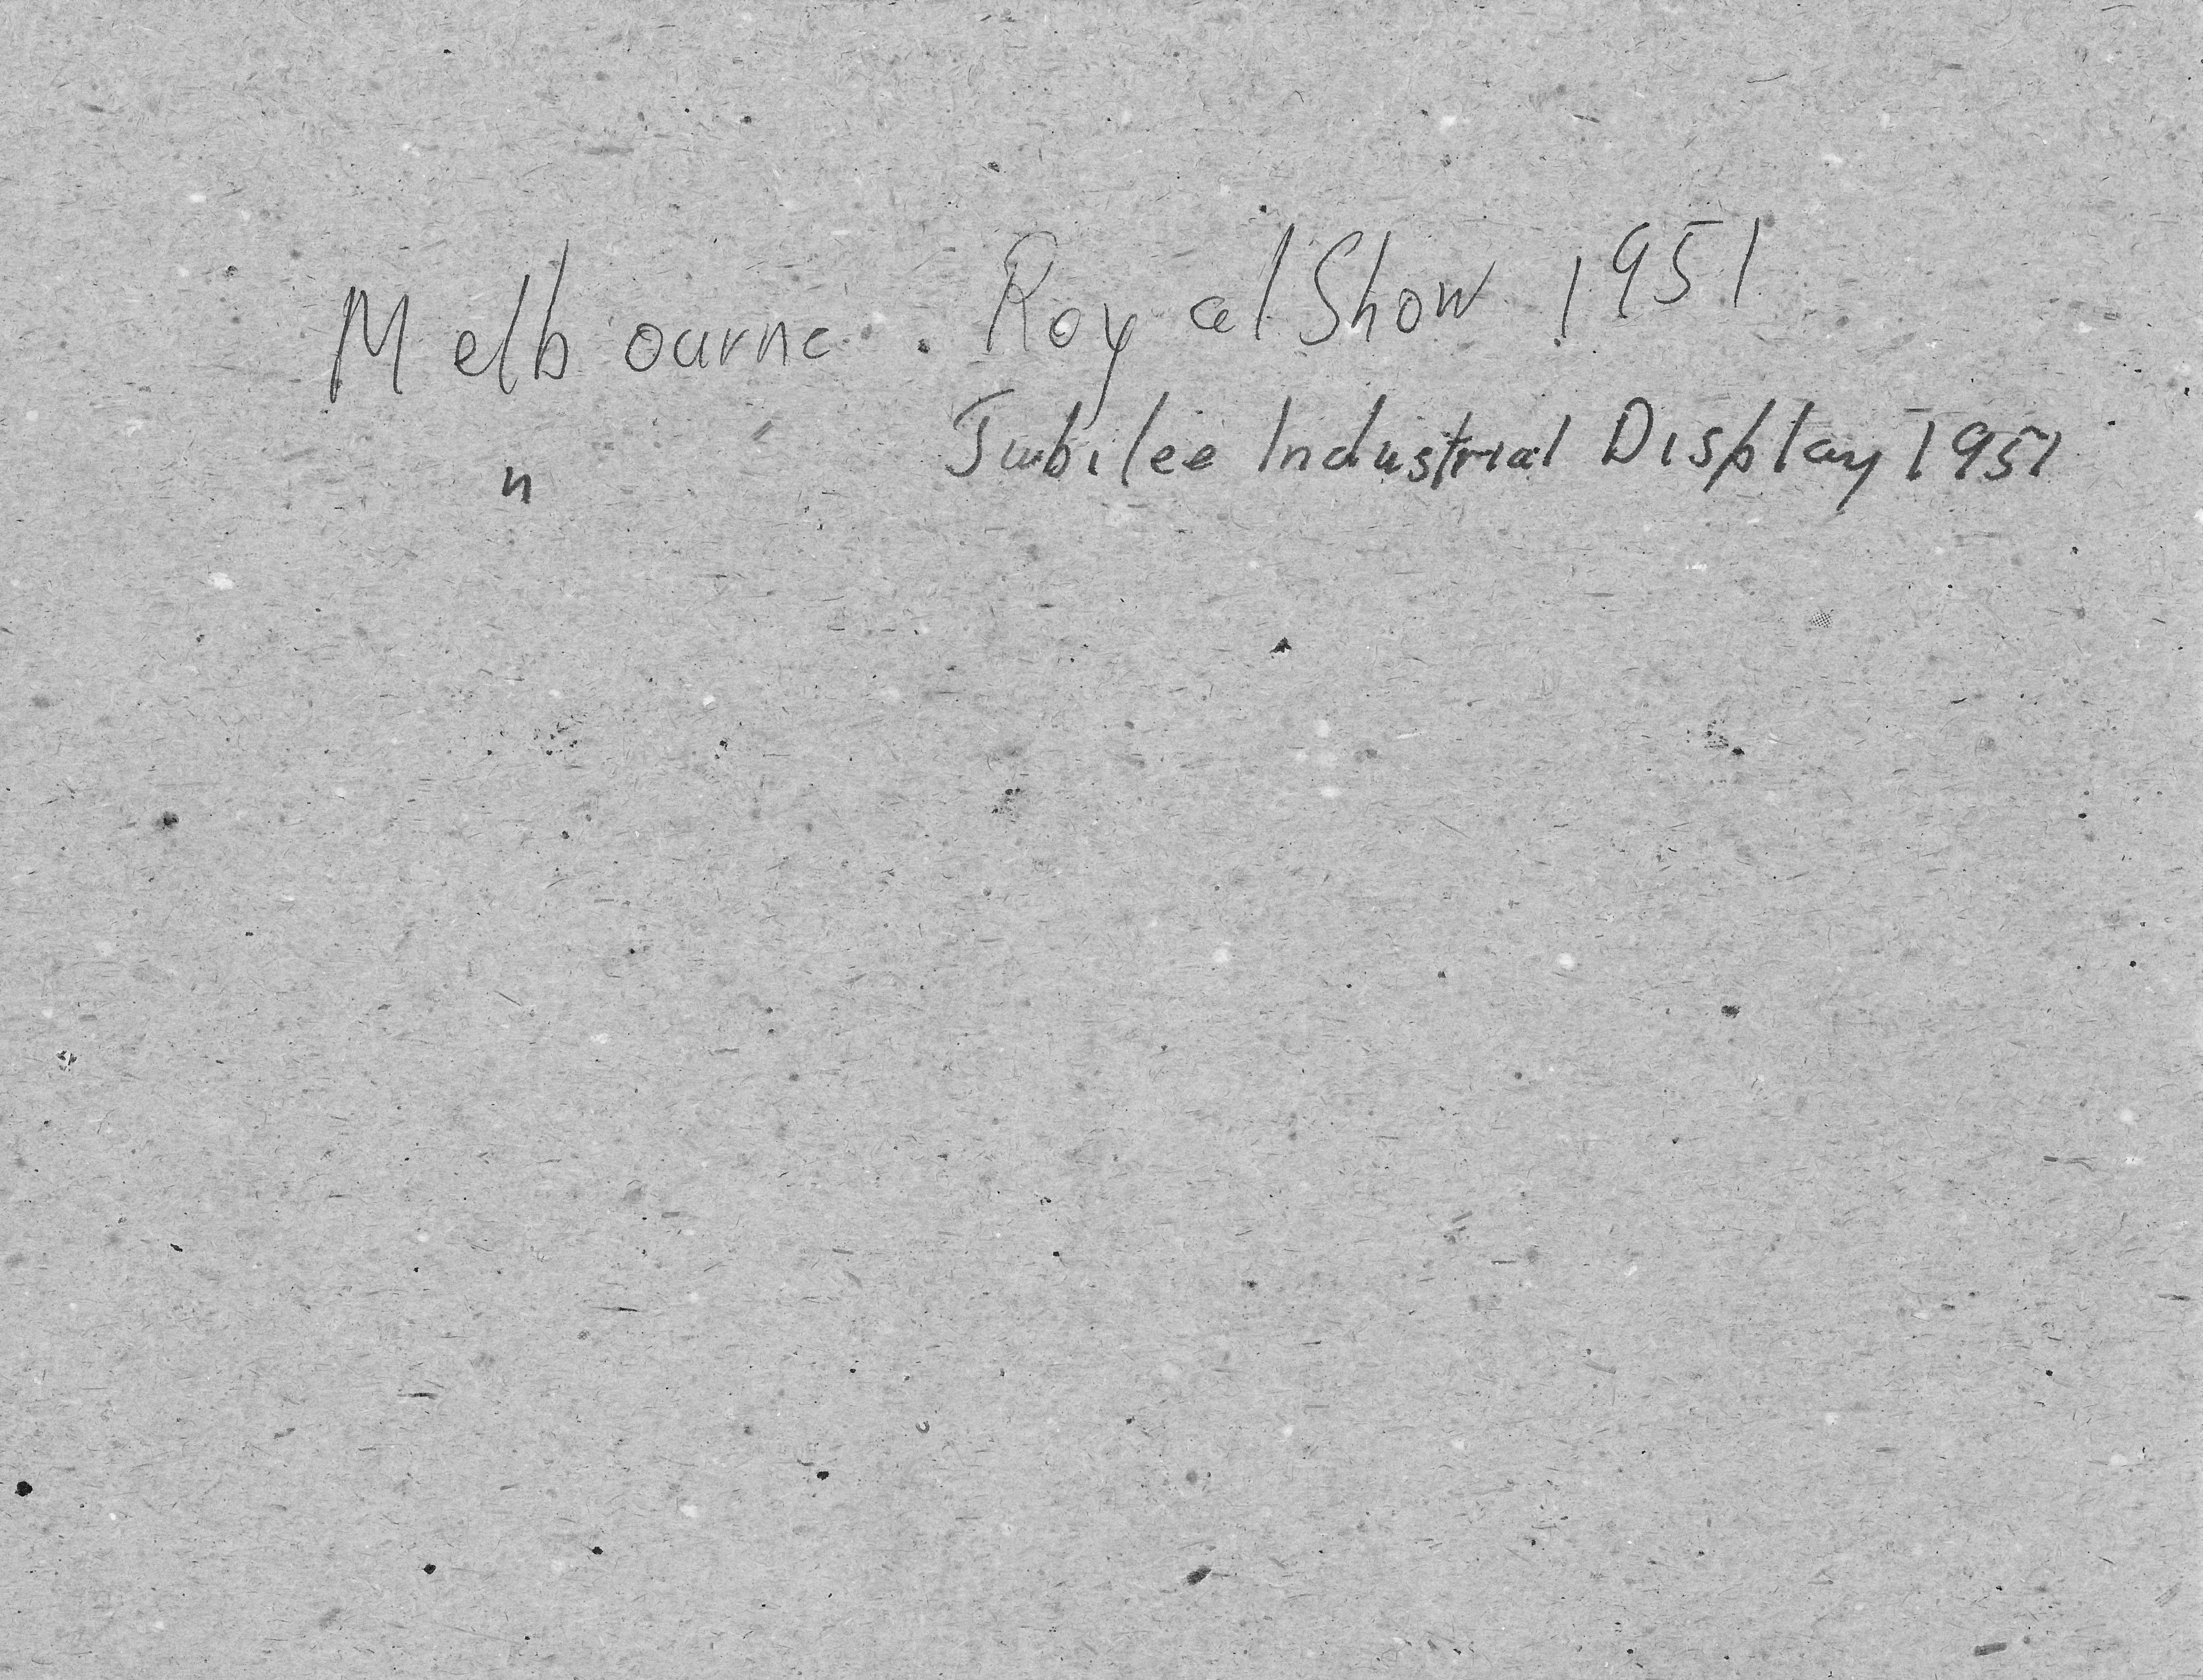 Melbourne. Royal Show 1951
" Jubilee Industrial Display 1951